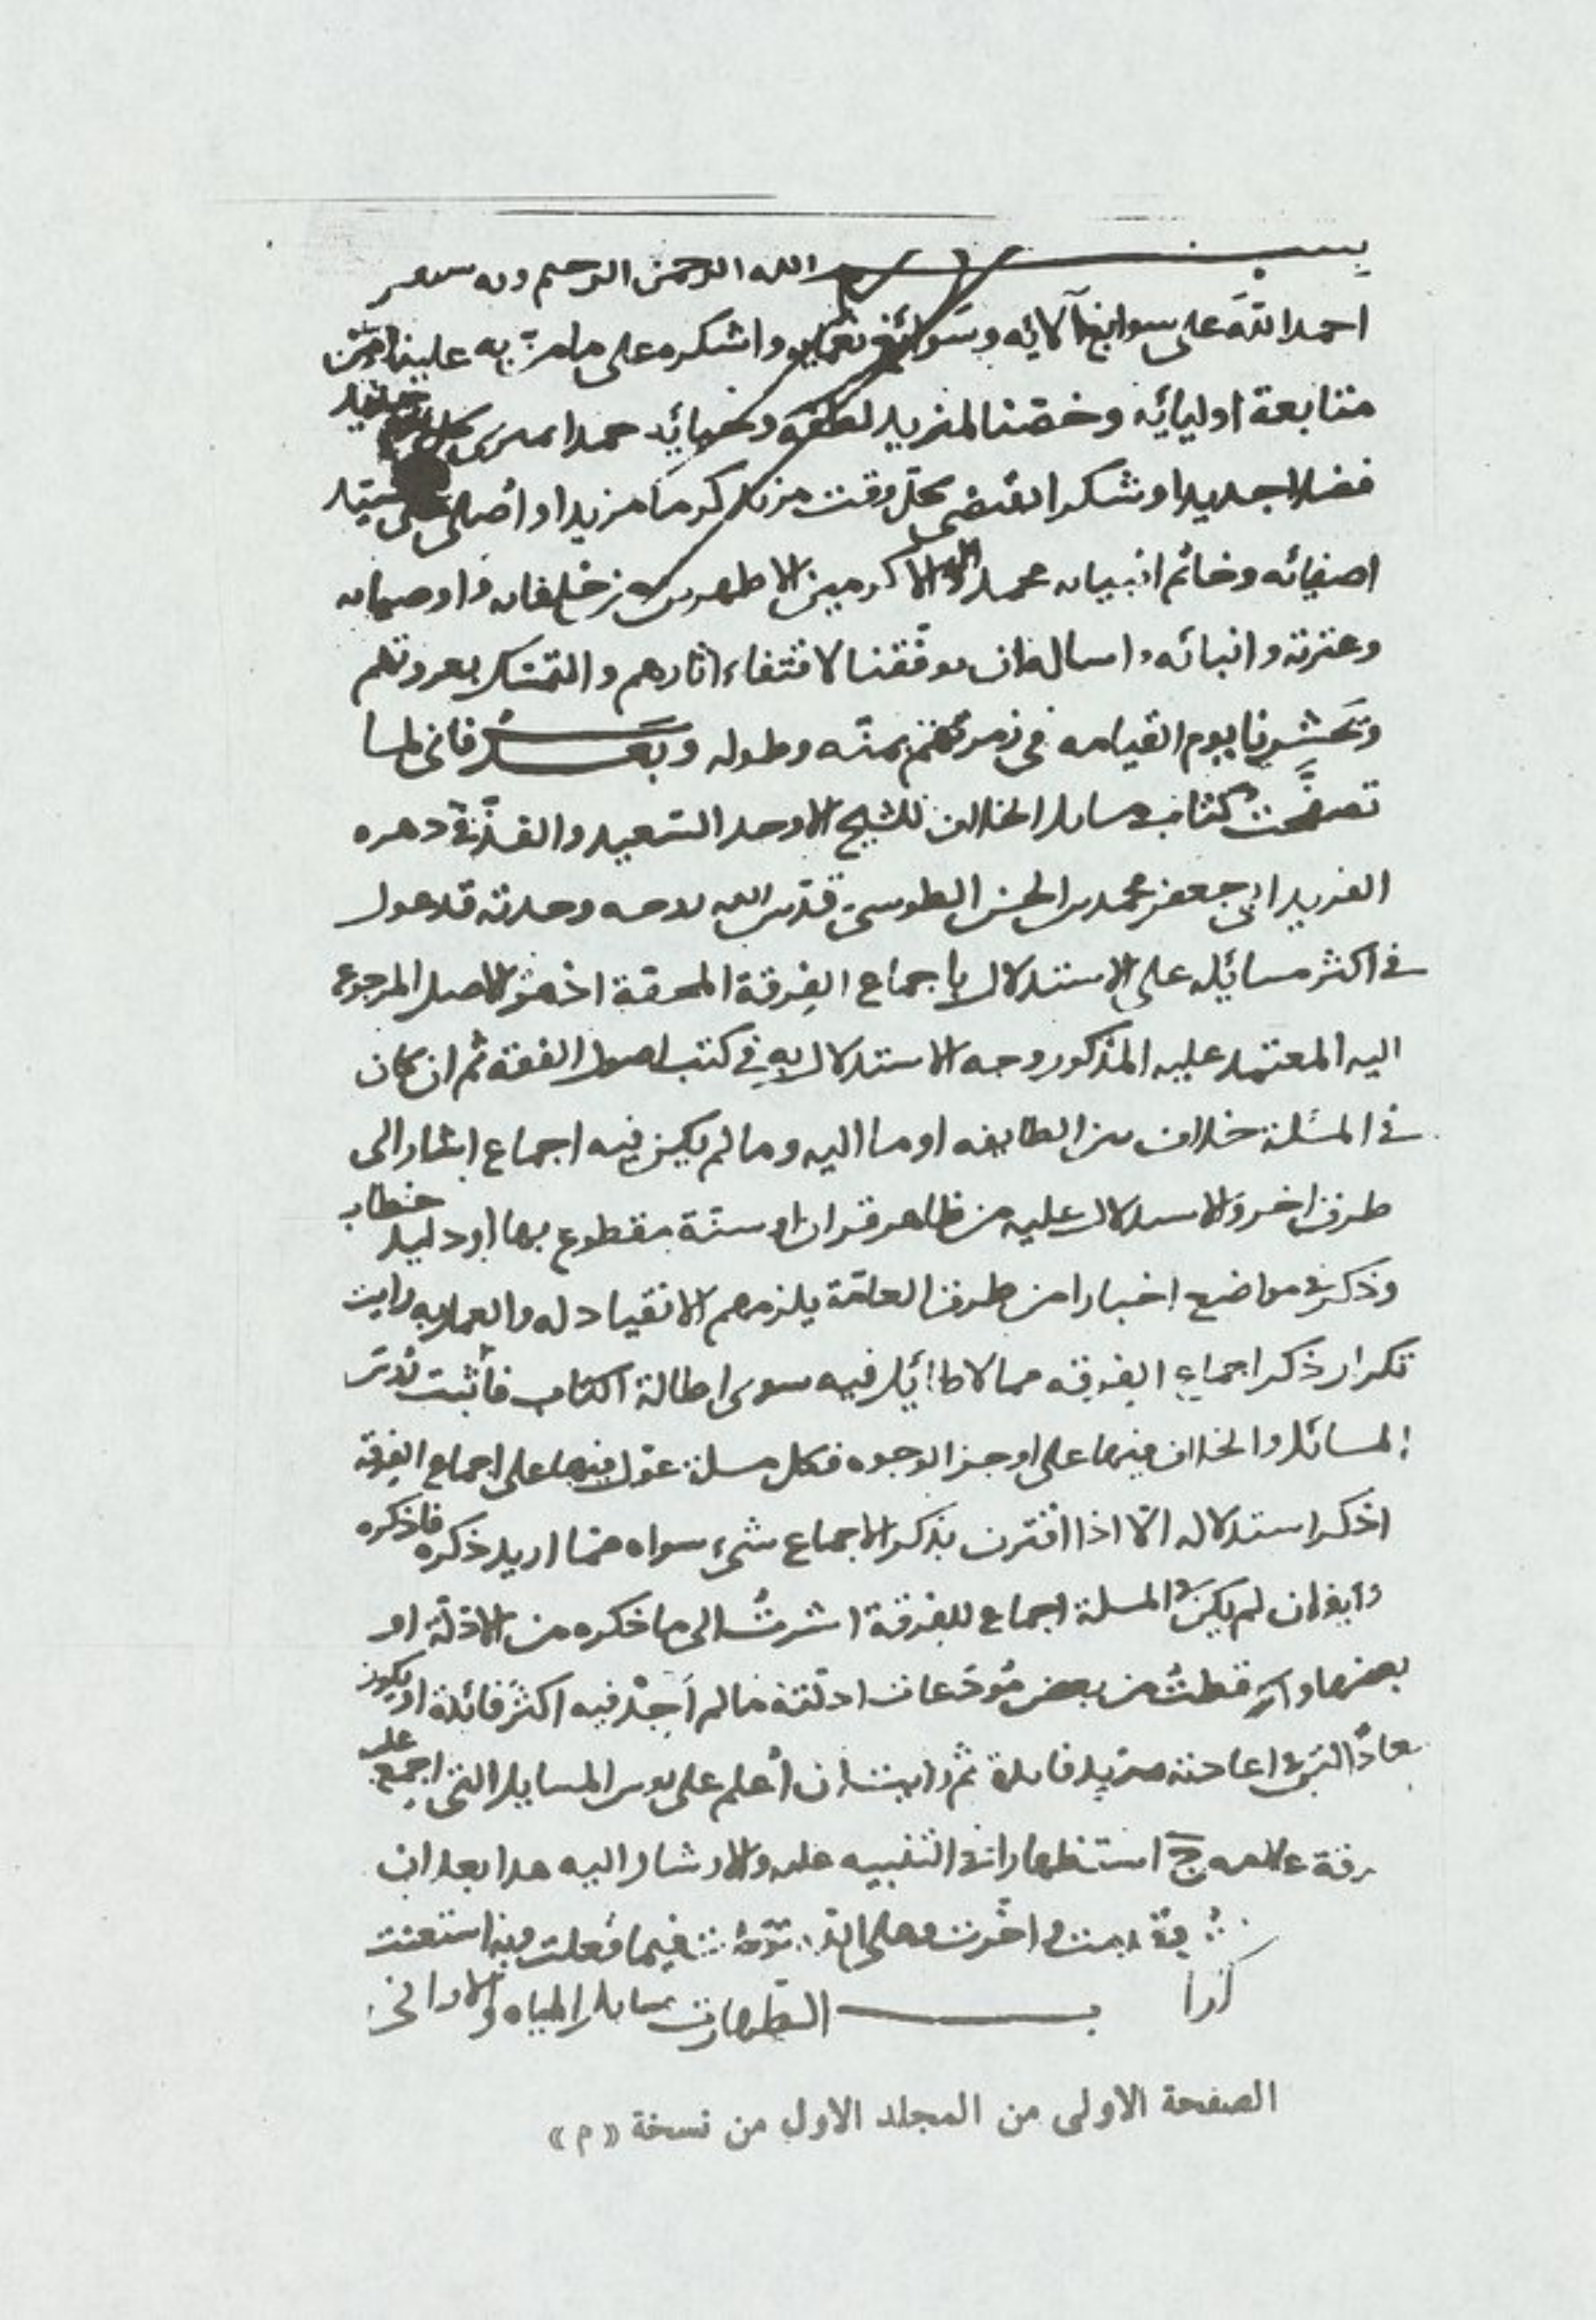 بسم الله الرحمن الرحيم وبه
احمد الله على سوابغ آلائه وسوائغ نعمائه واشكره على ما منّ به علينا من
متابعة اوليائه وخصّنا لمزيد لطفه وحبائه حمدا
فضلا جديدا وشكرا يقتضى بكلّ وقت من كرما مزيدا واُصلى على سيّد
اصفيائه وخاتم انبيائه محمد واله الاكرمين الاطهرين من خلفائه واوصيائه
وعترته وانبائه واساله ان يوفّقنا لاقتفاء اثارهم والتمسّك بعروتهم
ويحشرنا يوم القيامه فى زمرتهم بمنّه وطوله وبَعدُ فانى لما
تصفّحتُ كتاب مسايل الخلاف للشيخ الاوحد السّعيد والفذّ فى دهره
الفريد ابى جعفر محمد بن الحسن الطوسىّ قدّس الله روحه وحدته قد عول
فى اكثر مسائله على الاستدلال باجماع الفِرقة المحقة اذ هو الاصل المرجوع
اليه المعتمد عليه المذكور وجه الاستدلال به فى كتب اصول الفقه ثم ان كان
فى المسئلة خلاف من الطايفه اوما اليه وما لم يكن فيه اجماع اشار الى
طرف اخر والاستدلال عليه من ظاهر قران او سنّة مقطوع بها او دليل خطاب
وذكر فى مواضع اخبارا من طرف العامّة يلزمهم الانقياد له والعمل به ورايت
تكرار ذكر اجماع الفرقه مما لا طائل فيه سوى اطالة الكتاب فأثبت
المسائل والخلاف فيها على اوجز الوجوه فكل مسلة عوّل فيها على اجماع الفِرقة
اذكر استدلاله الّا اذا اقترن بذكر الاجماع شىء سواه ممّا اريد ذكره فاذكره
وايضا ان لم يكن فى المسلة اجماع للفرقة اشرتُ الى ما ذكره من الادلّة او
بعضها واسقطتُ من بعض مُودَعات ادلّته مالم اَجِدْ فيه اكثر فائدة او يكون
معادًا ليس فى اعادته مزيد فايدة ثم رايت ان أعلم على روس المسايل التى اجمع على
رقة علامه ج استظهارا فى التنبيه عليه والارشاد اليه هذا بعد ان
قدمت واخّرت وعلى الله فيما فعلت وبه استعنت
كذا
ب الطّهارت مسايل المياه والاوانى
الصفحة الاولى من المجلد الاول من نسخة «م»